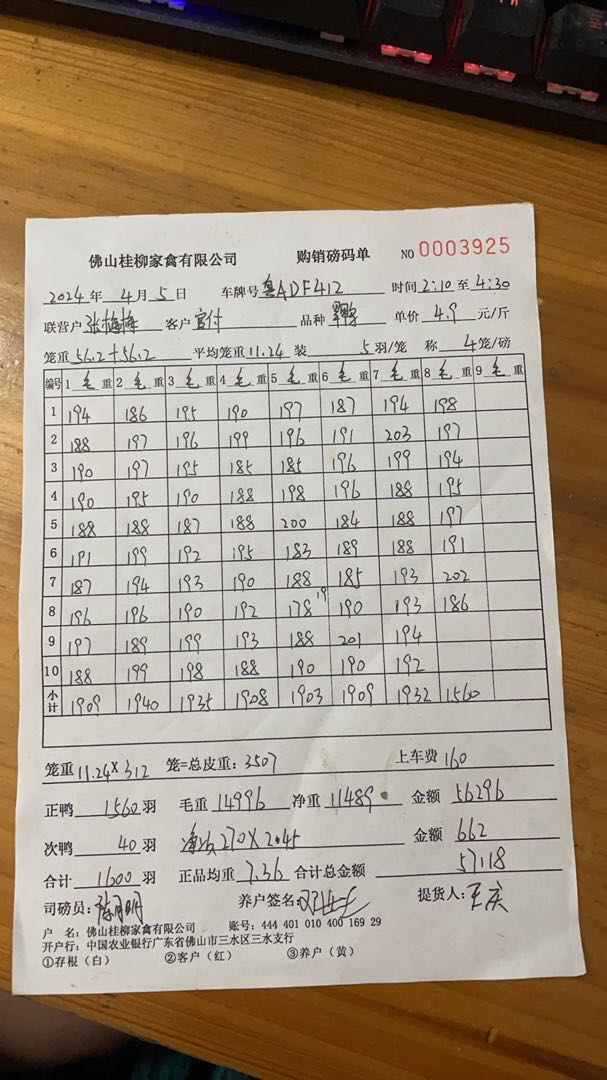 佛山桂柳家禽有限公司 购销磅码单 NO 0003925
2024 年 4 月 5 日 车牌号 粤ADF412 时间 2:10 至 4:30
联营户 客户 品种 单价 4.9 元/斤
笼重 56.2+56.2 平均笼重 11.24 装 5 羽/笼 称 4 笼/磅
编号 1 毛 重 2 毛 重 3 毛 重 4 毛 重 5 毛 重 6 毛 重 7 毛 重 8 毛 重 9 毛 重
1 194 186 195 190 197 187 194 198
2 188 197 196 199 196 191 203 197
3 190 197 195 185 185 196 199 194
4 190 195 190 188 198 196 188 195
5 188 188 187 188 200 184 188 197
6 191 199 192 195 183 189 188 191
7 187 194 193 190 188 185 193 202
8 196 196 190 192 178 19 190 193 186
9 197 189 199 193 188 201 194
10 188 199 198 188 190 190 192
小计 1909 1940 1935 1908 1903 1909 1932 1560
笼重 11.24 × 312 笼=总皮重: 3507 上车费 160
正鸭 1560 羽 毛重 14996 净重 11489 金额 56296
次鸭 40 羽 270×2.45 金额 662
合计 1600 羽 正品均重 7.36 合计总金额 57118
司磅员: 养户签名: 提货人: 王庆
户 名: 佛山桂柳家禽有限公司 账号: 444 401 010 400 169 29
开户行: 中国农业银行广东省佛山市三水区三水支行
①存根（白） ②客户（红） ③养户（黄）